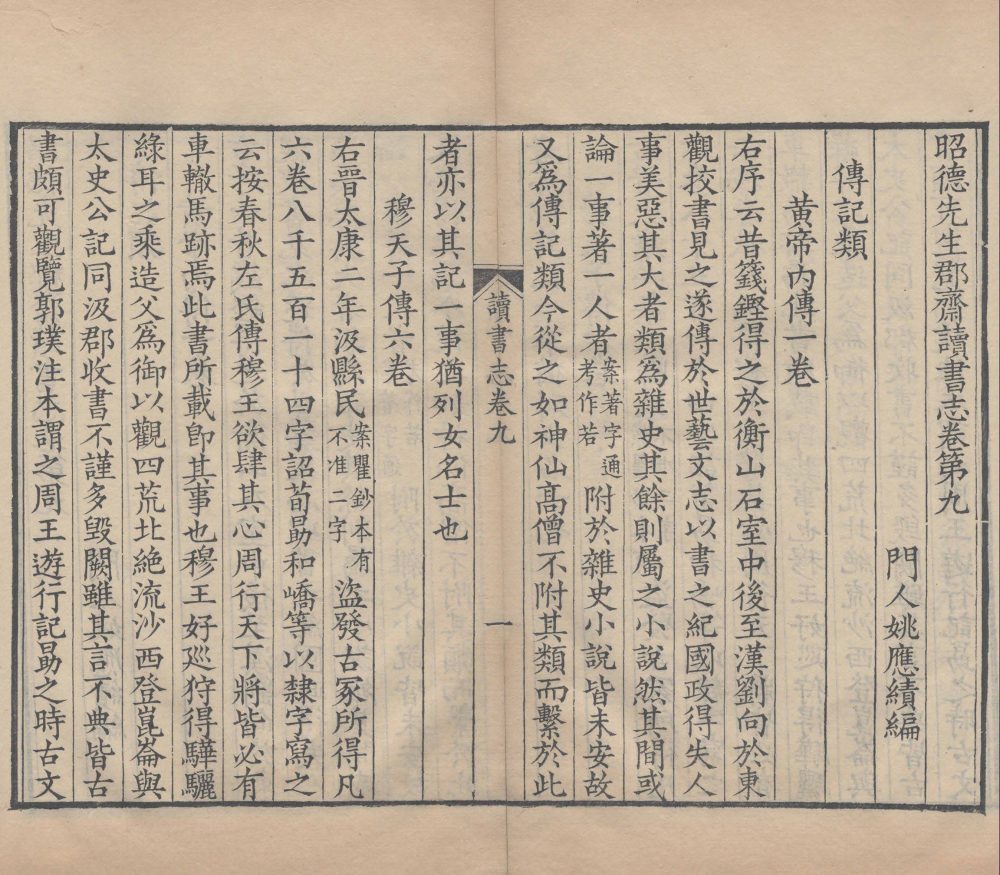 昭德先生郡齋讀書志卷第九
門人姚應績編
傳記類
黃帝內傳一卷
右序云昔籛鏗得之於衡山石室中後至漢劉向於東
觀挍書見之遂傳於世藝文志以書之紀國政得失人
事美惡其大者類爲雜史其餘則屬之小說然其間或
論一事著一人者案著字通考作若附於雜史小說皆未安故
又爲傳記類今從之如神仙高僧不附其類而繫於此
讀書志卷九
一
者亦以其記一事猶列女名士也
穆天子傳六卷
右晉太康二年汲縣民案瞿鈔本有不准二字盜發古冢所得凡
六卷八千五百一十四字詔荀勗和嶠等以隸字寫之
云按春秋左氏傳穆王欲肆其心周行天下將皆必有
車轍馬跡焉此書所載卽其事也穆王好廵狩得驊騮
綠耳之乘造父爲御以觀四荒北絶流沙西登崑崙與
太史公記同汲郡收書不謹多毀闕雖其言不典皆古
書頗可觀覽郭璞注本謂之周王遊行記勗之時古文